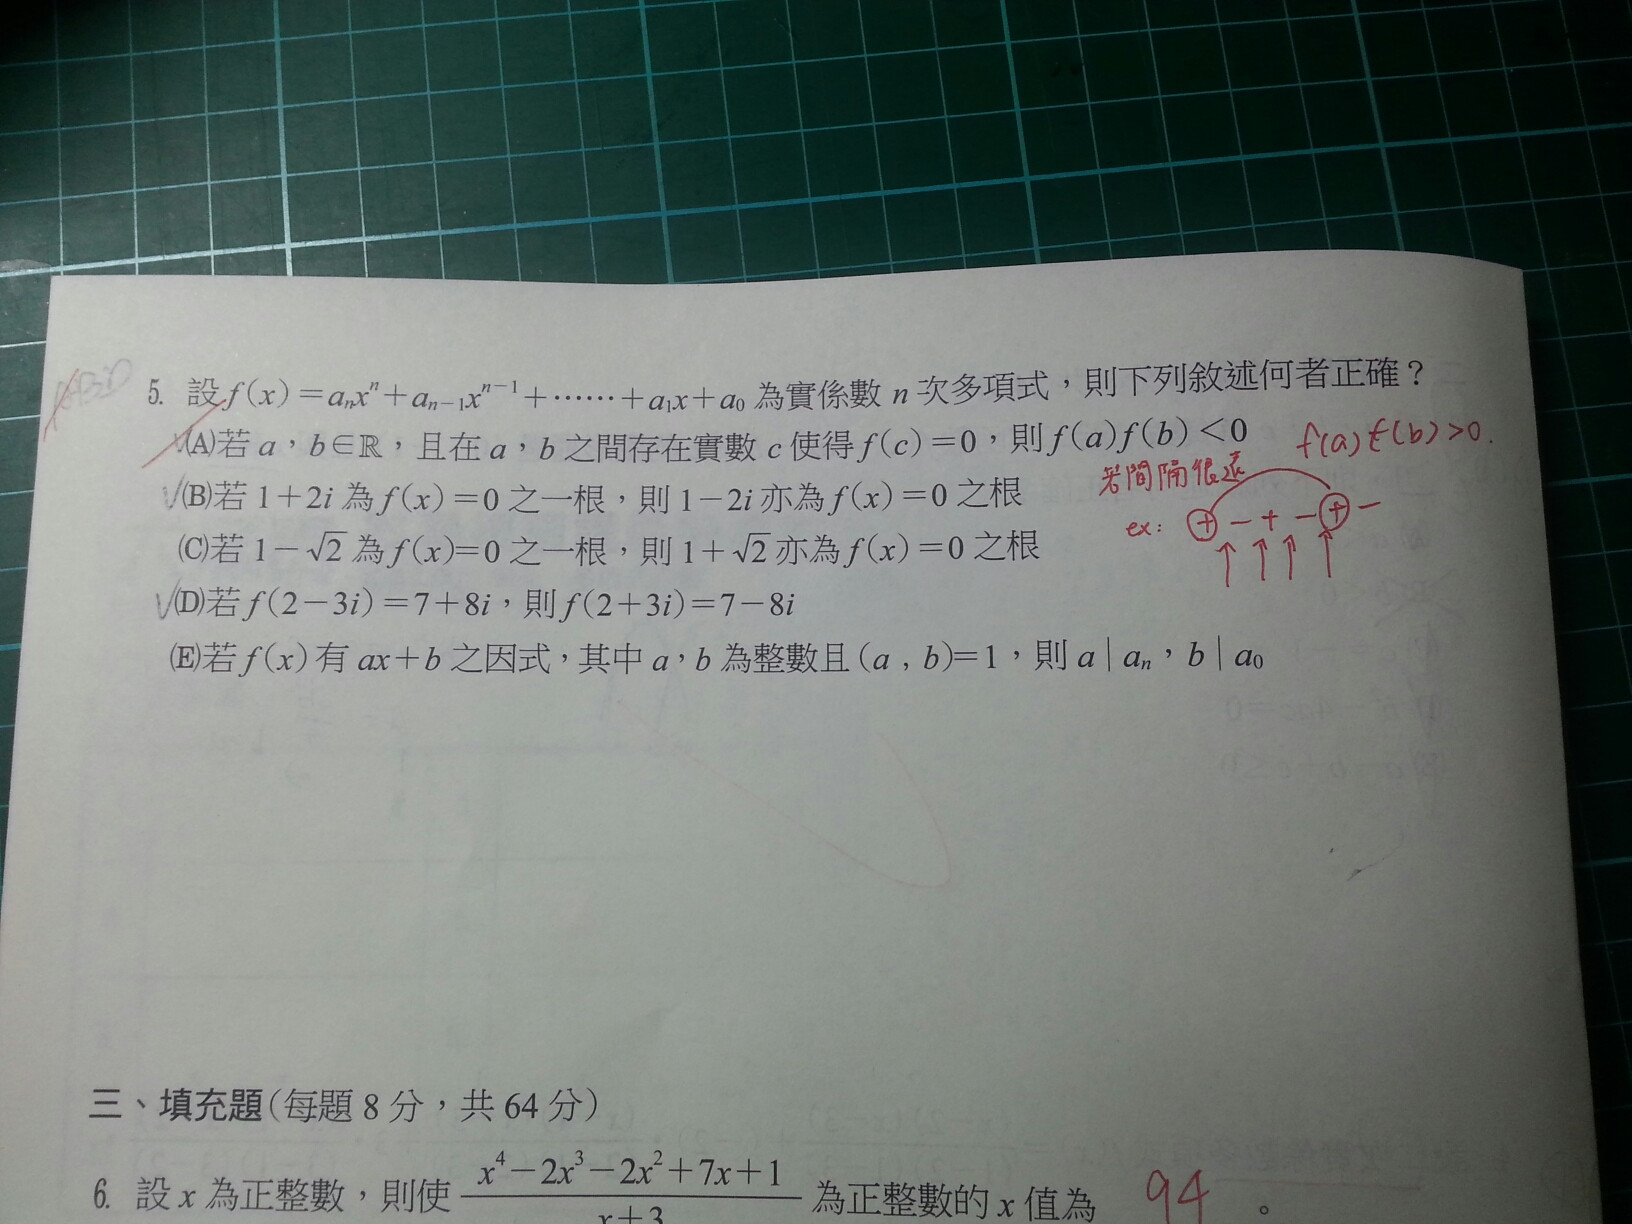 5. 設 f(x)=aₙxⁿ+aₙ₋₁xⁿ⁻¹+⋯⋯+a₁x+a₀ 為實係數 n 次多項式，則下列敘述何者正確？
(A)若 a，b∈ℝ，且在 a，b 之間存在實數 c 使得 f(c)=0，則 f(a)f(b)<0
f(a)f(b)>0.
若間隔很遠
(B)若 1+2i 為 f(x)=0 之一根，則 1−2i 亦為 f(x)=0 之根
ex: ⊕ − + − ⊕ −
↑ ↑ ↑ ↑
(C)若 1−√2 為 f(x)=0 之一根，則 1+√2 亦為 f(x)=0 之根
(D)若 f(2−3i)=7+8i，則 f(2+3i)=7−8i
(E)若 f(x) 有 ax+b 之因式，其中 a，b 為整數且 (a , b)=1，則 a | aₙ，b | a₀
三、填充題(每題 8 分，共 64 分)
6. 設 x 為正整數，則使 (x⁴−2x³−2x²+7x+1)/(x+3) 為正整數的 x 值為 94 。